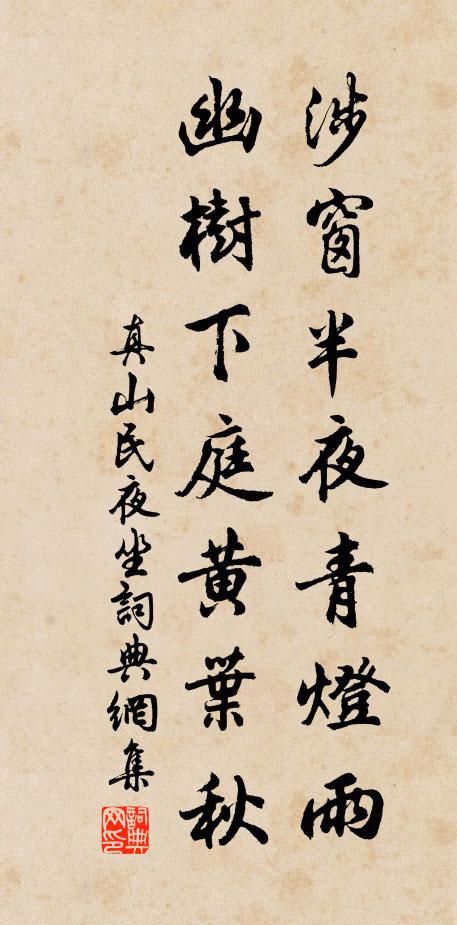 涉窗半夜青燈雨
幽樹下庭黃葉秋
真山民夜坐詞典網集
詞典
网印